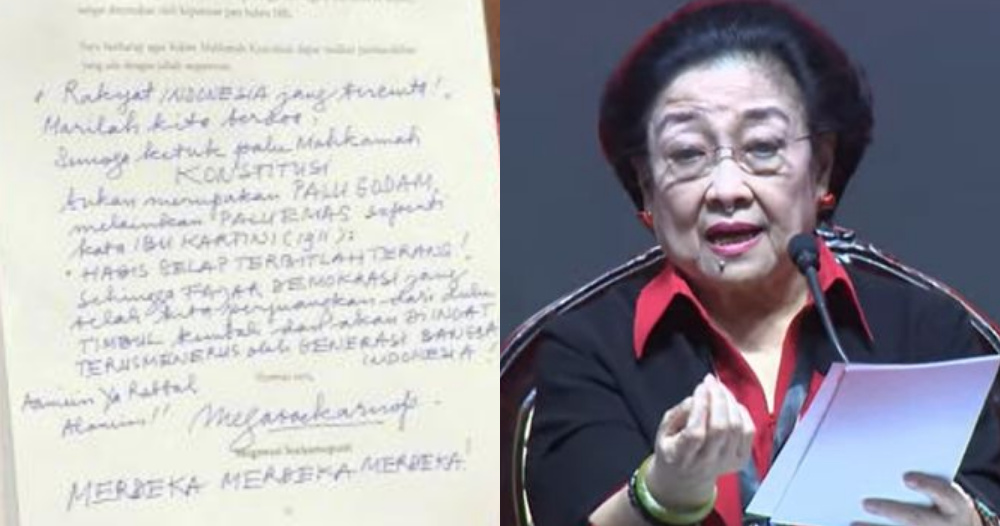 sangat ditentukan oleh keputusan para hakim MK.
Saya berharap agar hakim Mahkamah Konstitusi dapat melihat permasalahan
yang ada dengan
Rakyat INDONESIA yang tercinta!
Marilah kita berdoa:
Semoga ketuk palu Mahkamah
KONSTITUSI
bukan merupakan PALU GODAM,
melainkan PALU EMAS seperti
kata IBU KARTINI (1911):
"HABIS GELAP TERBITLAH TERANG!
Sehingga FAJAR DEMOKRASI yang
telah kita perjuangkan dari dulu
TIMBUL kembali dan akan DIINGAT
TERUSMENERUS oleh GENERASI BANGSA
INDONESIA
Aamiin Ya Rabbal
Alamin!!
Hormat saya,
Megawati Soekarnoputri
MERDEKA MERDEKA MERDEKA.